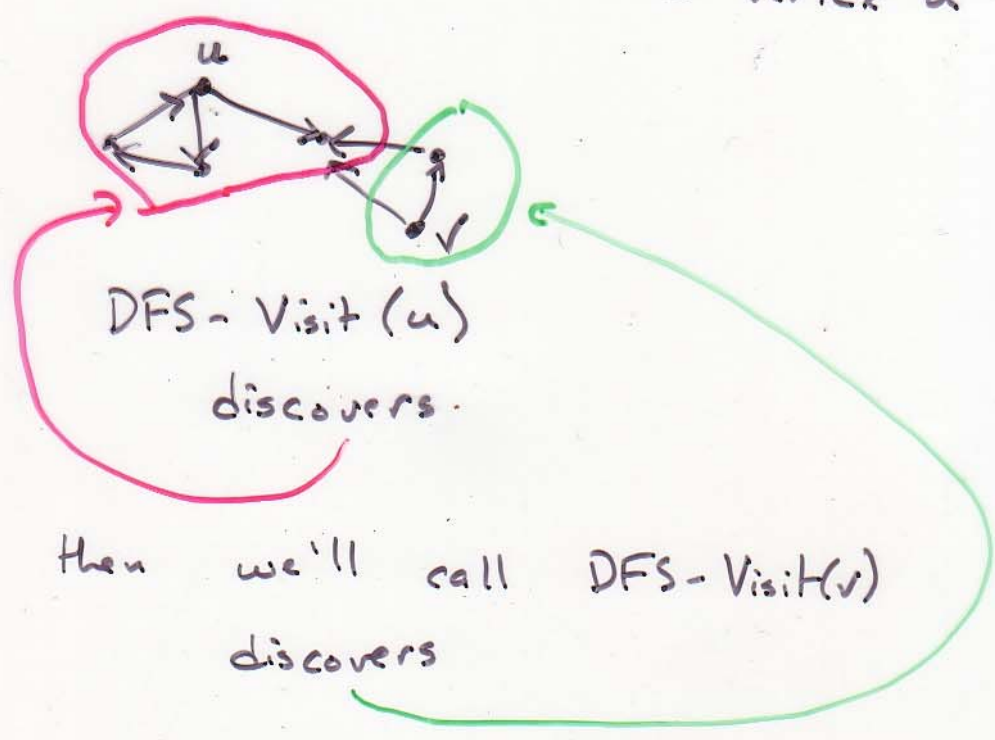 u
v
DFS-Visit(u)
discovers.
then we'll call DFS-Visit(v)
discovers